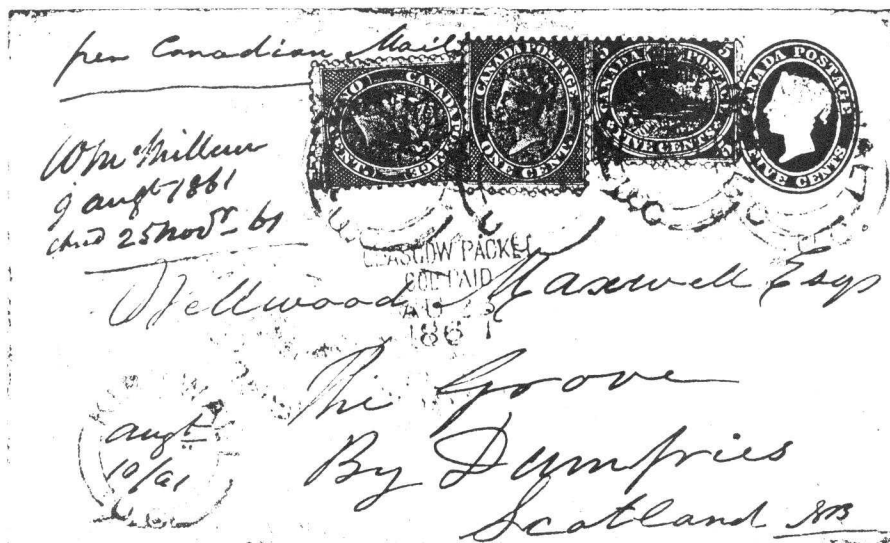 per Canadian Mail
CANADA POSTAGE ONE CENT
CANADA POSTAGE ONE CENT
5 CANADA POSTAGE 5 FIVE CENTS 5
CANADA POSTAGE FIVE CENTS
Wm Millan
9 augt 1861
25 Novr 61
GLASGOW PACKET
COL PAID
AU 23
1861
Wellwood Maxwell Esqr
The Grove
augt
10/61
By Dumfries
Scotland NB